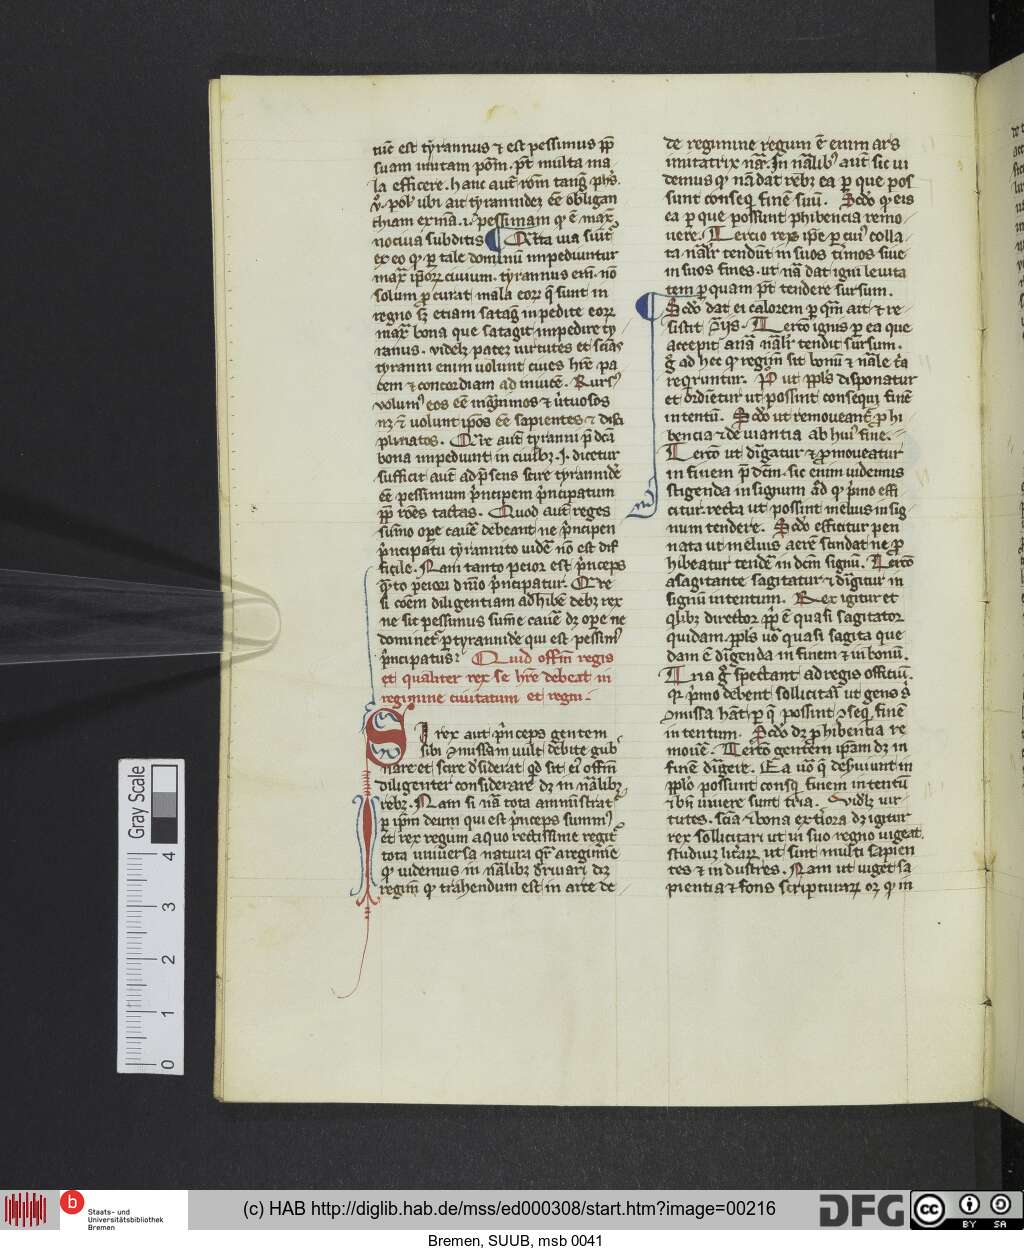 tunc est tyrannus ⁊ est pessimus ꝓp̄
suam unitam pōm. pt̄ multa ma
la efficere. hanc aut̄ rōm tanḡ ph̄s.
v̊. pol̄. ubi ait tyrannidez ēē obligan
chiam exmā.i. pessimam qꝫ ē max̄
nociua subditis ¶ Qͣrta uia suīt̄
ex eo qꝫ ꝑ tale dominū impediuntur
max̄ ip̄oꝝ ciuium. tyrannus eīm nō
solum ꝓcurat mala eoꝝ q̄ sunt in
regno sꝫ etiam sataḡ inpedite eoꝝ
max̄ bona que satagit impedire ty
rannus. videlꝫ patez uirtutes et sciās
tyranni enim uolunt ciues hr̄e pa
cem ⁊ concordiam ad inuicē. Rursꝰ
volumꝰ eos ēē magnimos ⁊ v̓tuosos
nꝫ ⁊ volunt ip̄os ēē sapientes ⁊ disci
plinatos. Qͣre aut̄ tyranni p̄ dc̄a
bona impediunt in ciuibꝫ .i. dicetur
sufficit aut̄ ad p̄sens scire tyrannidē
ēē pessimum p̓ncipem p̓ncipatum
ꝓp̄ rōes tactas. Quod aut̄ reges
sum̄o ope cauē debeant ne p̓ncipen
p̓ncipatu tyrannico uidē nō est dif
ficile. Nam tanto peior est p̓nceps
qͣ̄to peiori dm̄io p̓ncipatur. Qͣre
si cōem diligentiam adhibē debꝫ rex
ne sit pessimus sum̄e cauē dꝫ ope ne
dominet̄ ꝑ tyrannidē qui est pessimꝰ
p̓ncipatus. Quid offm̄ regis
et qualiter rex se hr̄e debeat in
regimine ciuitatum et regni.
SI rex aut p̓nceps gentem
sibi ꝯmissam uult debite gub̄
nare et scire dſiderat qd̄ sit eiꝰ offm̄
diligenter considerare dꝫ in nālibꝫ
rebꝫ. Nam si nā tota amministrat̄
ꝑ ip̄m deum qui est p̓nceps summꝰ
et rex regum a quo rectissime regit̄
tota uniuersa natura qr̄ a regimīe
qꝫ uidemus in nālibꝫ dr̓iuari dꝫ
regim̄ qꝫ trahendum est in arte de
de regimine regum ē enim ars
imitatrix nā. In nālibꝰ aut̄ sic ui
demus qꝫ nā dat rebꝫ ea ꝑ que pos
sunt conseq̄ finē suū. Scd̄o qꝫ eis
ea ꝑ que possunt ꝓhibencia remo
uere. Tercio regꝫ ip̄e ꝑ cuiꝰ colla
ta nālr̄ tendūt in suos tīmos siue
in suos fines. ut nā dat igni leuita
tem ꝑ quam pt̄ tendere sursum.
¶ Scd̄o dat ei calorem ꝑ qm̄ ait ⁊ re
sistit ꝯ̄ijs. Tercō ignis ꝑ ea que
accepit a nā nālr̄ tendit sursum.
g̊ ad hec qꝫ regim̄ sit bonū ⁊ nāle t̓a
reqruntur. P̓º ut ppl̄s disponatur
et ordietur ut possint consequi finē
intentū. Scd̄o ut remoueant̄ ꝓhi
bencia ⁊ deuiantia ab huiꝰ fine.
Tercō ut dirigatur ⁊ ꝓmoueatur
in finem p̄ dcm̄. sic enim uidemus
in sagitta. 
citur recta ut possint melius in sig
num tendere. Scd̄o efficitur pen
nata ut melius aerē scindat ne ꝓ
hibeatur tendē in dcm̄ signū. Tercō
a sagitante sagitatur ⁊ dirigitur in
signū intentum. Rex igitur et
qlibꝫ director ppl̄i ē quasi sagitator
quidam. ppl̄s uō quasi sagita que
dam ē dirigenda in finem ⁊ in bonū.
Tria g̊ spectant ad regis officiū.
qr̄ p̓mo debent sollicitari ut gens s̓
ꝯmissa hāt ꝑ q̄ possunt ꝯseq̄ finē
intentum. Scd̄o dꝫ ꝓhibentia re
mouē. Tercō gentem ip̄am dꝫ in
finē dirigere. Ea uō q̄ deseruiunt in
ppl̄o possunt consq̄ finem intentū
⁊ bn̄ uiuere sunt tria. Vidlꝫ uir
tutes. scīa ⁊ bona exteriora dꝫ igitur
rex sollicitari ut in suo regno uigeat
studiuꝫ lit̄aꝝ ut sint multi sapien
tes ⁊ industres. Nam ut uiget sa
pientia ⁊ fons scripturaꝝ oꝫ qꝫ in
Gray Scale
0 1 2 3 4
b Staats- und
Universitätsbibliothek
Bremen
(c) HAB http://diglib.hab.de/mss/ed000308/start.htm?image=00216
DFG cc BY SA
Bremen, SUUB, msb 0041